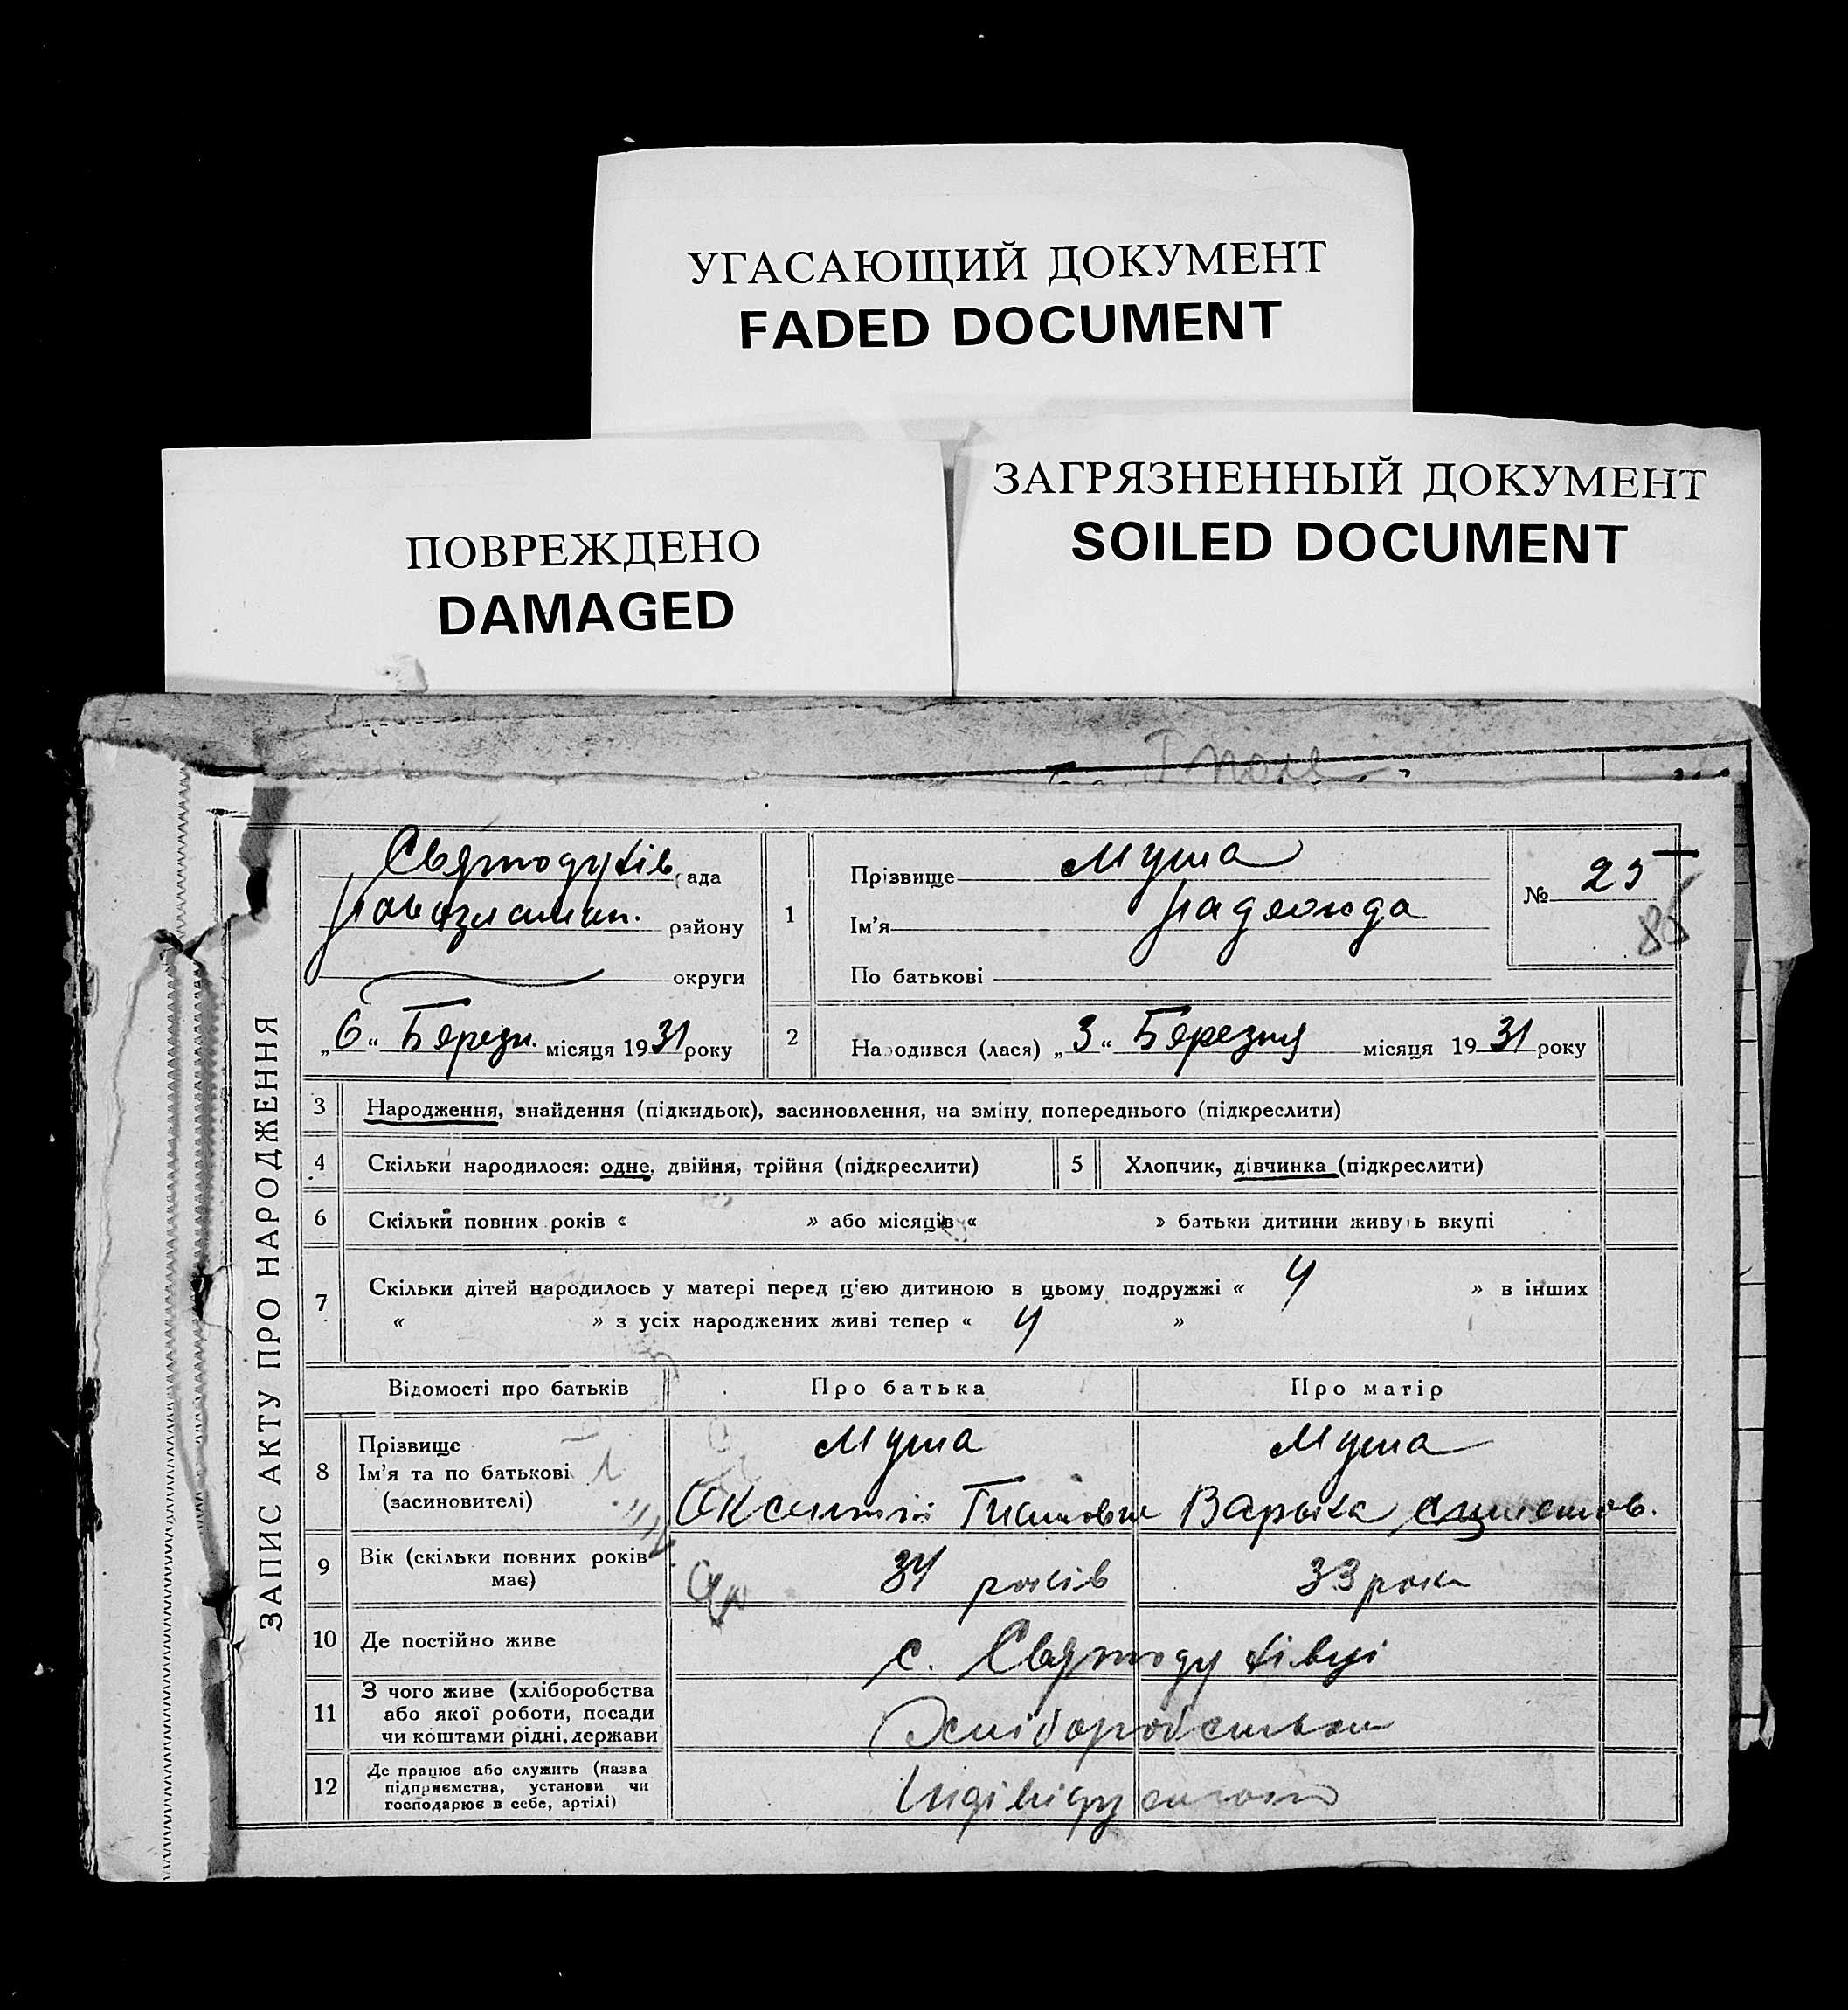 УГАСАЮЩИЙ ДОКУМЕНТ
FADED DOCUMENT
ПОВРЕЖДЕНО
DAMAGED
ЗАГРЯЗНЕННЫЙ ДОКУМЕНТ
SOILED DOCUMENT
ЗАПИС АКТУ ПРО НАРОДЖЕННЯ
Святодухів рада
району
округи
„6“ Березн. місяця 1931 року
1
Прізвище Муша
Ім'я Надежда
По батькові
№ 25
85
2
Народився (лася) „3“ Березня місяця 1931 року
3 Народження, знайдення (підкидьок), засиновлення, на зміну попереднього (підкреслити)
4 Скільки народилося: одне, двійня, трійня (підкреслити) 5 Хлопчик, дівчинка (підкреслити)
6 Скільки повних років « » або місяців « » батьки дитини живуть вкупі
7 Скільки дітей народилось у матері перед ц'єю дитиною в цьому подружжі « 4 » в інших
« » з усіх народжених живі тепер « 4 »
Відомості про батьків Про батька Про матір
8 Прізвище
Ім'я та по батькові
(засиновителі)
Муша Муша
Варька
9 Вік (скільки повних років
має)
34 років 33 роки
10 Де постійно живе с. Святодухівці
11 З чого живе (хліборобства
або якої роботи, посади
чи коштами рідні, держави
Хліборобством
12 Де працює або служить (назва
підприємства, установи чи
господарює в себе, артілі)